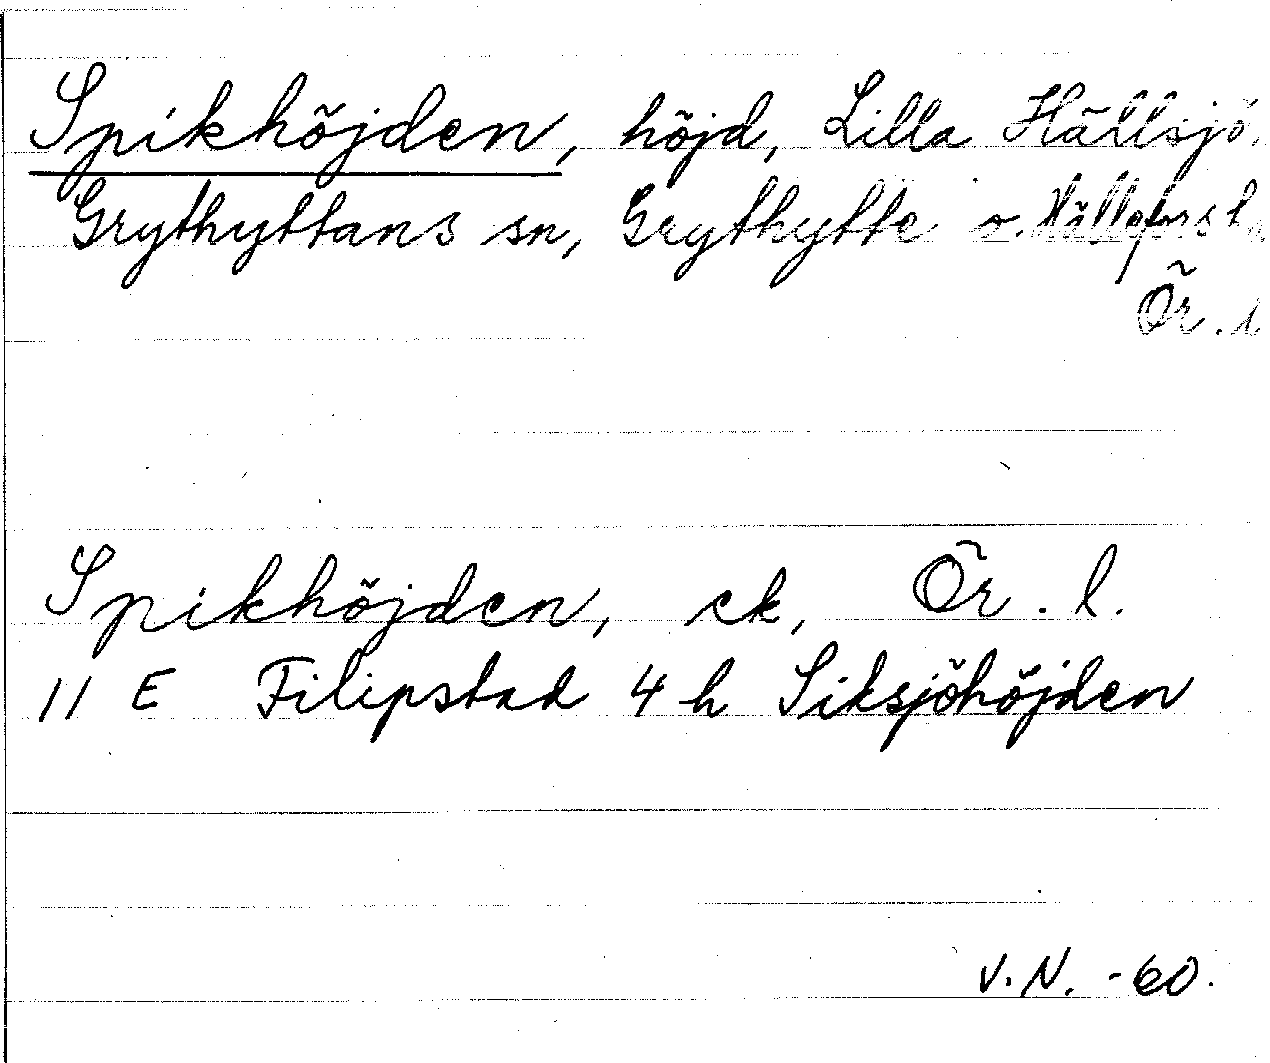 Spikhöjden, höjd, Lilla Hällsjö.
Grythyttans sn, Grythytte o. Hällefors l.
Ör. l
Spikhöjden, ek, Ör. l.
11 E Filipstad 4 h Siksjöhöjden
V. N. -60.